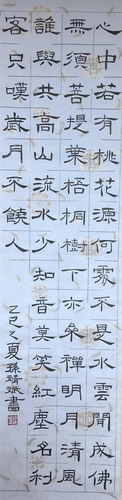 心中若有桃花源何處不是水雲間成佛
無須菩提葉梧桐樹下亦參禪明月清風
誰與共高山流水少知音莫笑紅塵名利
客只嘆歲月不饒人
乙巳之夏孫靖斌書